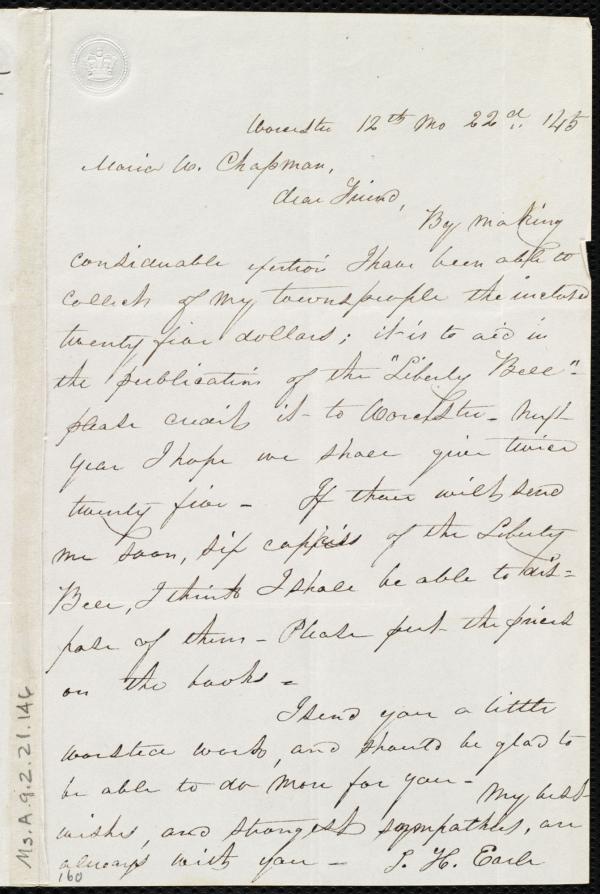 Worcester 12th Mo 22d. 145
Maria W. Chapman,
dear Friend,
By making
considerable exertion I have been able to
collect of my townspeople the inclosed
twenty five dollars; it is to aid in
the publication of the "Liberty Bell" -
please credit it to Worcester - next
year I hope we shall give twice
twenty five - If thou wilt send
me soon, six coppies of the Liberty
Bell, I think I shall be able to dis=
pose of them - Please put the prices
on the books =
I send you a little
worsted work, and should be glad to
be able to do more for you -
My best
wishes, and strongest sympathies, are
always with you - S. H. Earle
Ms. A. 9. 2. 21. 146
160